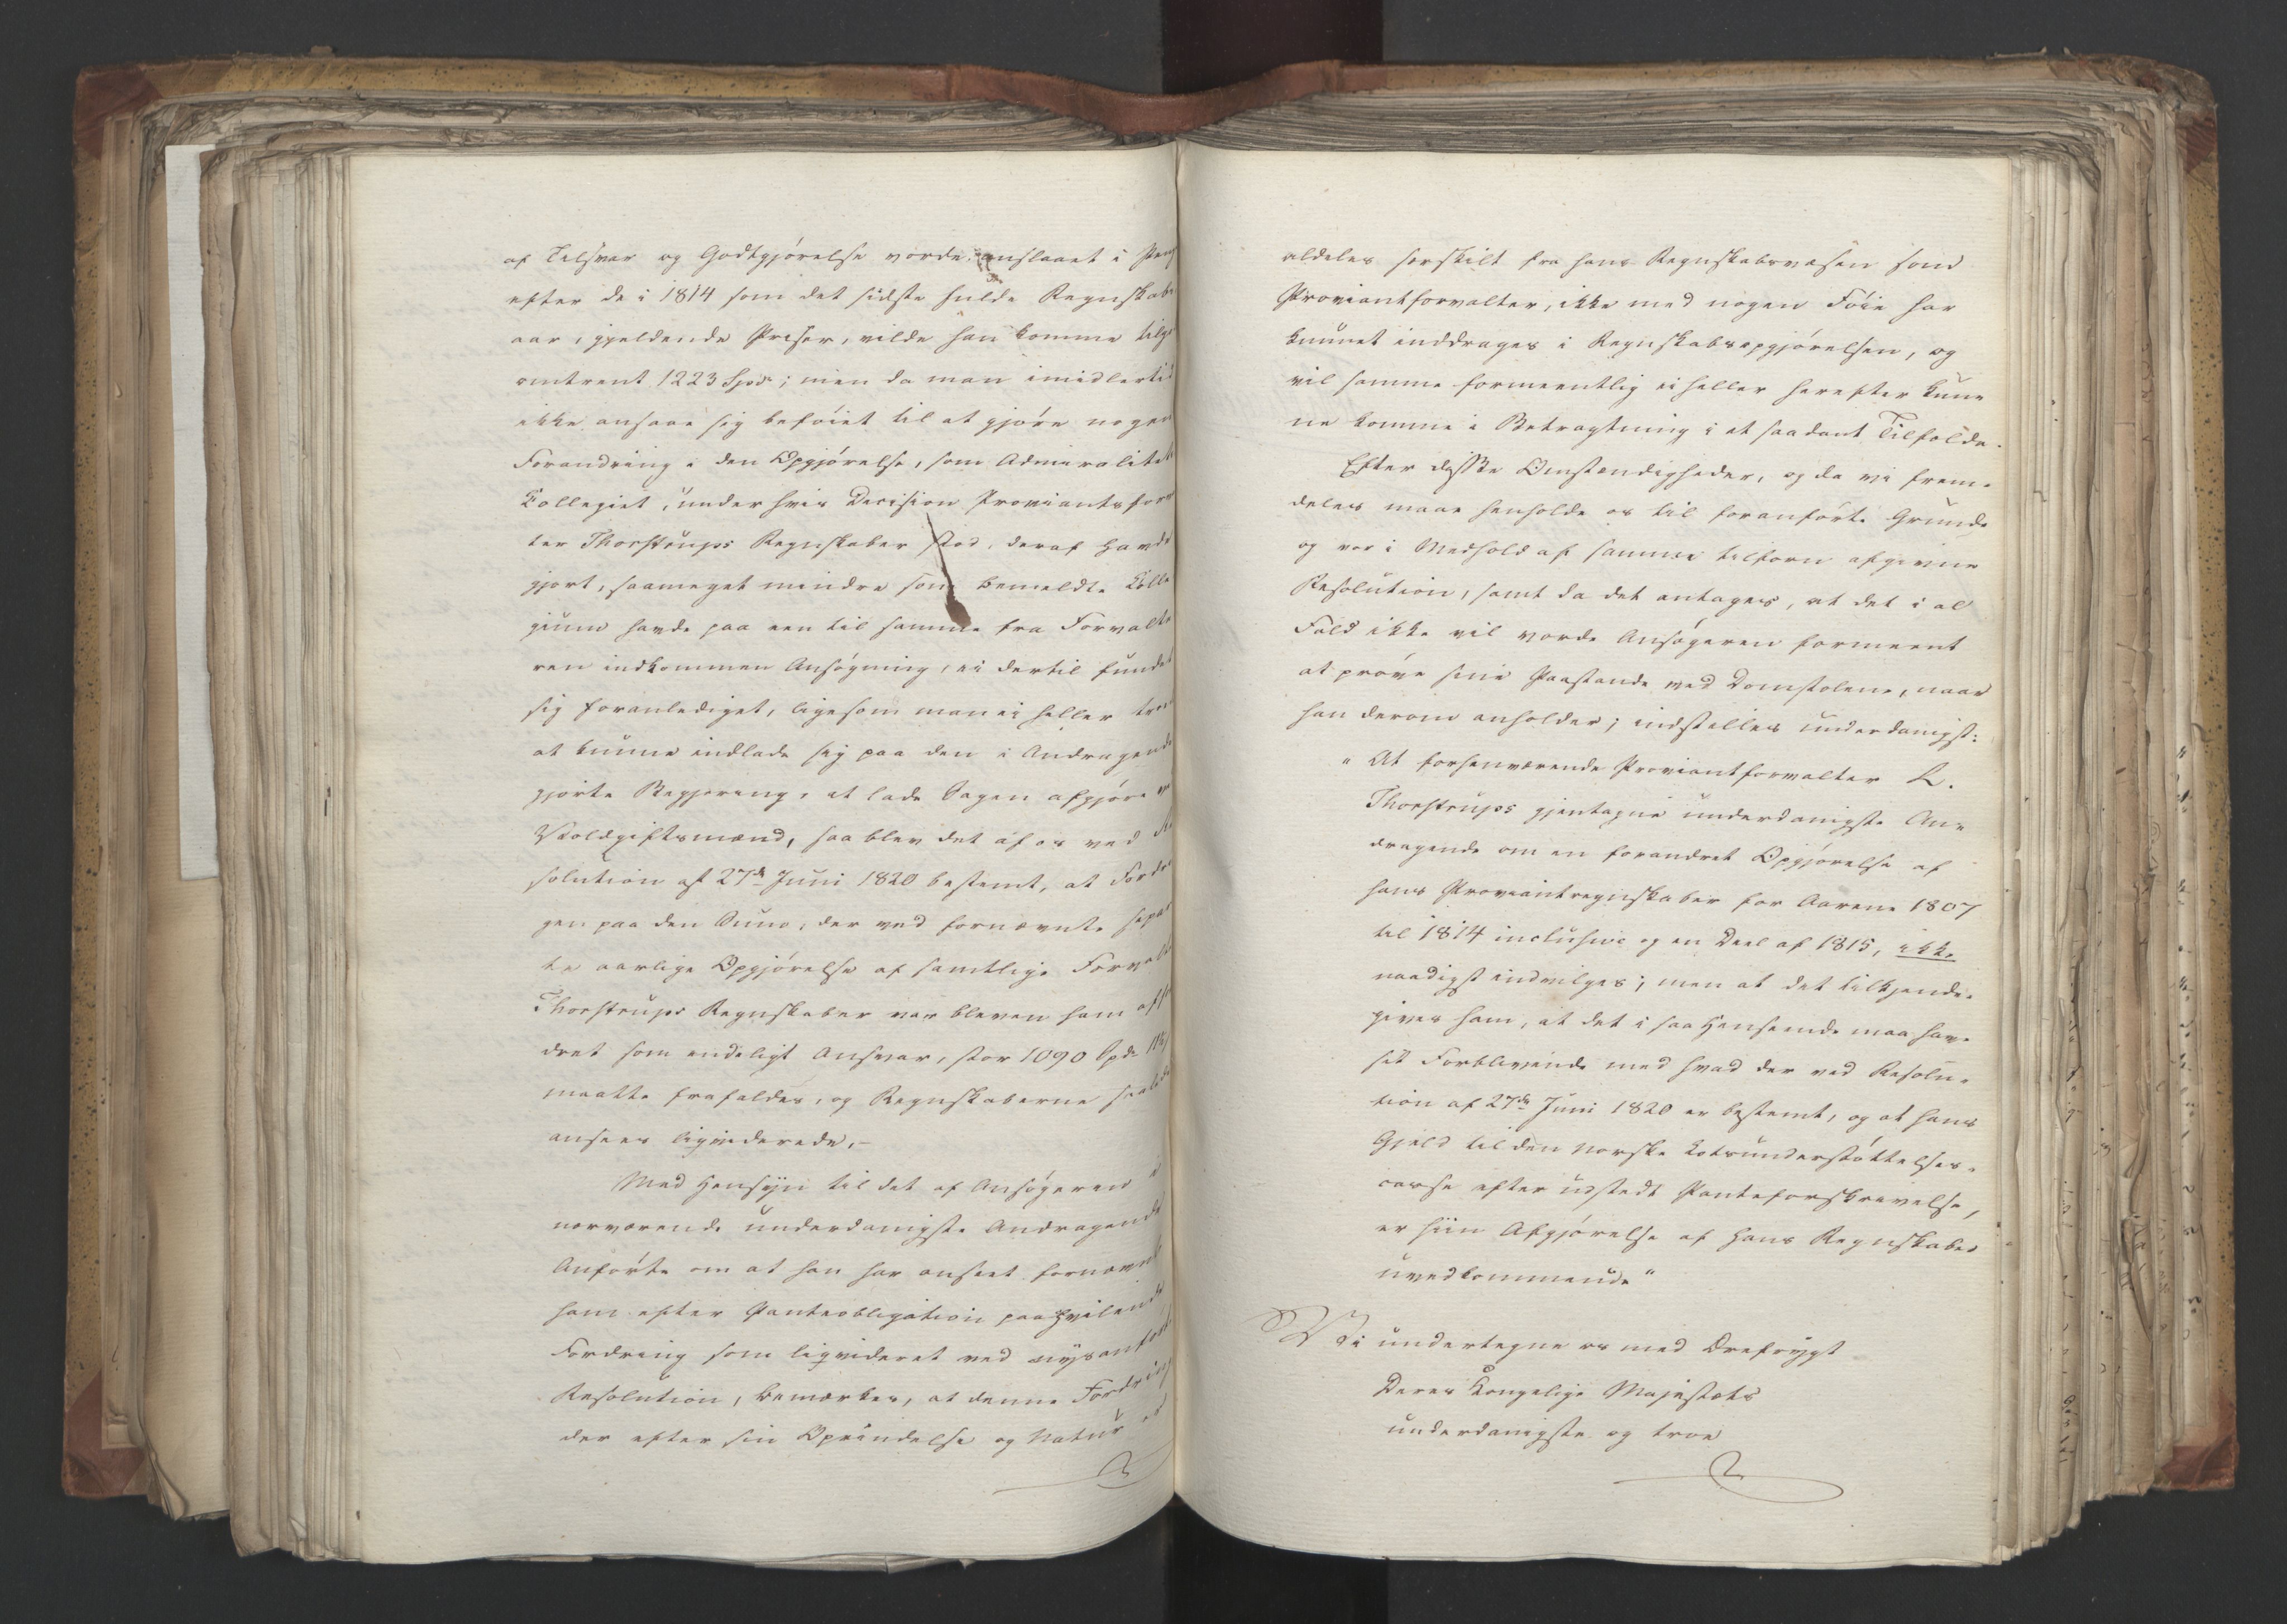 af Tilsvar og Godtgjørelse vorde anslaaet i Peng
efter de i 1814 som det sidste hulde Regnskabs
aar, gjeldende Priser, vilde han komme tilgo
omtrent 1223 Spd; men da man imidlertid
ikke ansaae sig beføiet til at gjøre nogen
Forandring i den Opgjørelse, som Admiralitets
Collegiet, under hvis Decision Proviantsforv
ter Thorstrups Regnskaber stod, deraf havde
gjort, saameget mindre som bemeldte Colle
gium havde paa een til samme fra Forvalte
ren indkommen Ansøgning, ei dertil fundet
sig foranlediget, ligesom man ei heller troe
at kunne indlade sig paa den i Andragende
gjorte Begjering, at lade Sagen afgjøre ve
Voldgiftsmænd, saa blev det af os ved Re
solution af 27de Juni 1820 bestemt, at Fordri
gen paa den Sum, der ved fornævnte sepa
te aarlige Opgjørelse af samtlige Forvalte
Thorstrups Regnskaber var bleven ham affor
dret som endeligt Ansvar, stor 1090 Spd 114
maatte frafaldes, og Regnskaberne saaledes
ansees ligviderede.-
Med Hensyn til det af Ansøgeren i
nærværende underdanigste Andragende
Anførte om at han har anseet fornævnte
ham efter Panteobligation paahvilende
Fordring som ligvideret ved nysanførte
Resolution, bemærkes, at denne Fordring
der efter sin Oprindelse og Natur er
aldeles særskilt fra hans Regnskabsvæsen som
Proviantforvalter, ikke med nogen Føie har
kunnet inddrages i Regnskabsopgjørelsen, og
vil samme formeentlig ei heller herefter kun¬
ne komme i Betragtning i et saadant Tilfælde.
Efter disse Omstændigheder, og da vi frem¬
deles maae henholde os til foranførte Grunde
og vor i Medhold af samme tilforn afgivne
Resolution, samt da det antages, at det i al
Fald ikke vil vorde Ansøgeren formeent
at prøve sine Paastande ved Domstolene, naar
han derom anholder; indstilles underdanigst:
"At forhenværende Proviantforvalter L.
Thorstrups gjentagne underdanigste An¬
dragende om en forandret Opgjørelse af
hans Proviantregnskaber for Aarene 1807
til 1814 inclusive og en Deel af 1815, ikke
naadigst indvilges; men at det tilkjende¬
gives ham, at det i saa Henseende maa have
sit Forblivende med hvad der ved Resolu¬
tion af 27de Juni 1820 er bestemt, og at hans
Gjeld til den norske Lotsunderstøttelses¬
casse efter udstedt Panteforskrivelse,
er hiin Afgjørelse af hans Regnskaber
uvedkommende"
Vi undertegne os med Ærefrygt
Deres Kongelige Majestæts
underdanigste og troe